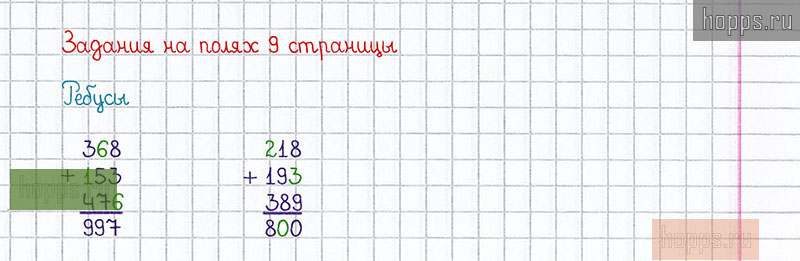 hopps.ru
Задания на полях 9 страницы
Ребусы
368 218
+ 153 + 193
hopps.ru
476 389
997 800
hopps.ru